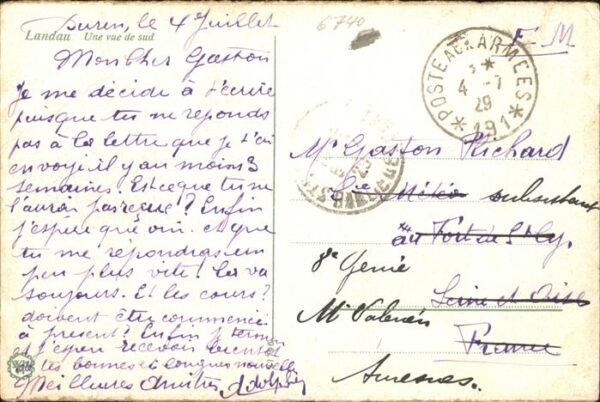 Landau Une vue de sud
Duren, le 4 Juillet
Mon cher Gaston
Je me décide à t'écrire
puisque tu ne réponds
pas à la lettre que je t'ai
envoyé il y a au moins 3
semaines. Est ce que tu ne
l'aurai pas reçue? Enfin
j'espère que oui. et que
tu me répondras un
peu plus vite! Ca va
toujours. Et les cours?
doivent être commencé
à présent? Enfin je termine
j'espère recevoir bientôt
de tes bonnes & longues nouvelles
Meilleures Amitiés
6740
F. M
POSTE AUX ARMEES
4 -7
29
* 191 *
Mr Gaston Richard
Cie Météo subsistant
au Fort de St Cyr
8e Génie
Seine et Oise
Mt Valérien
France
Suresnes.